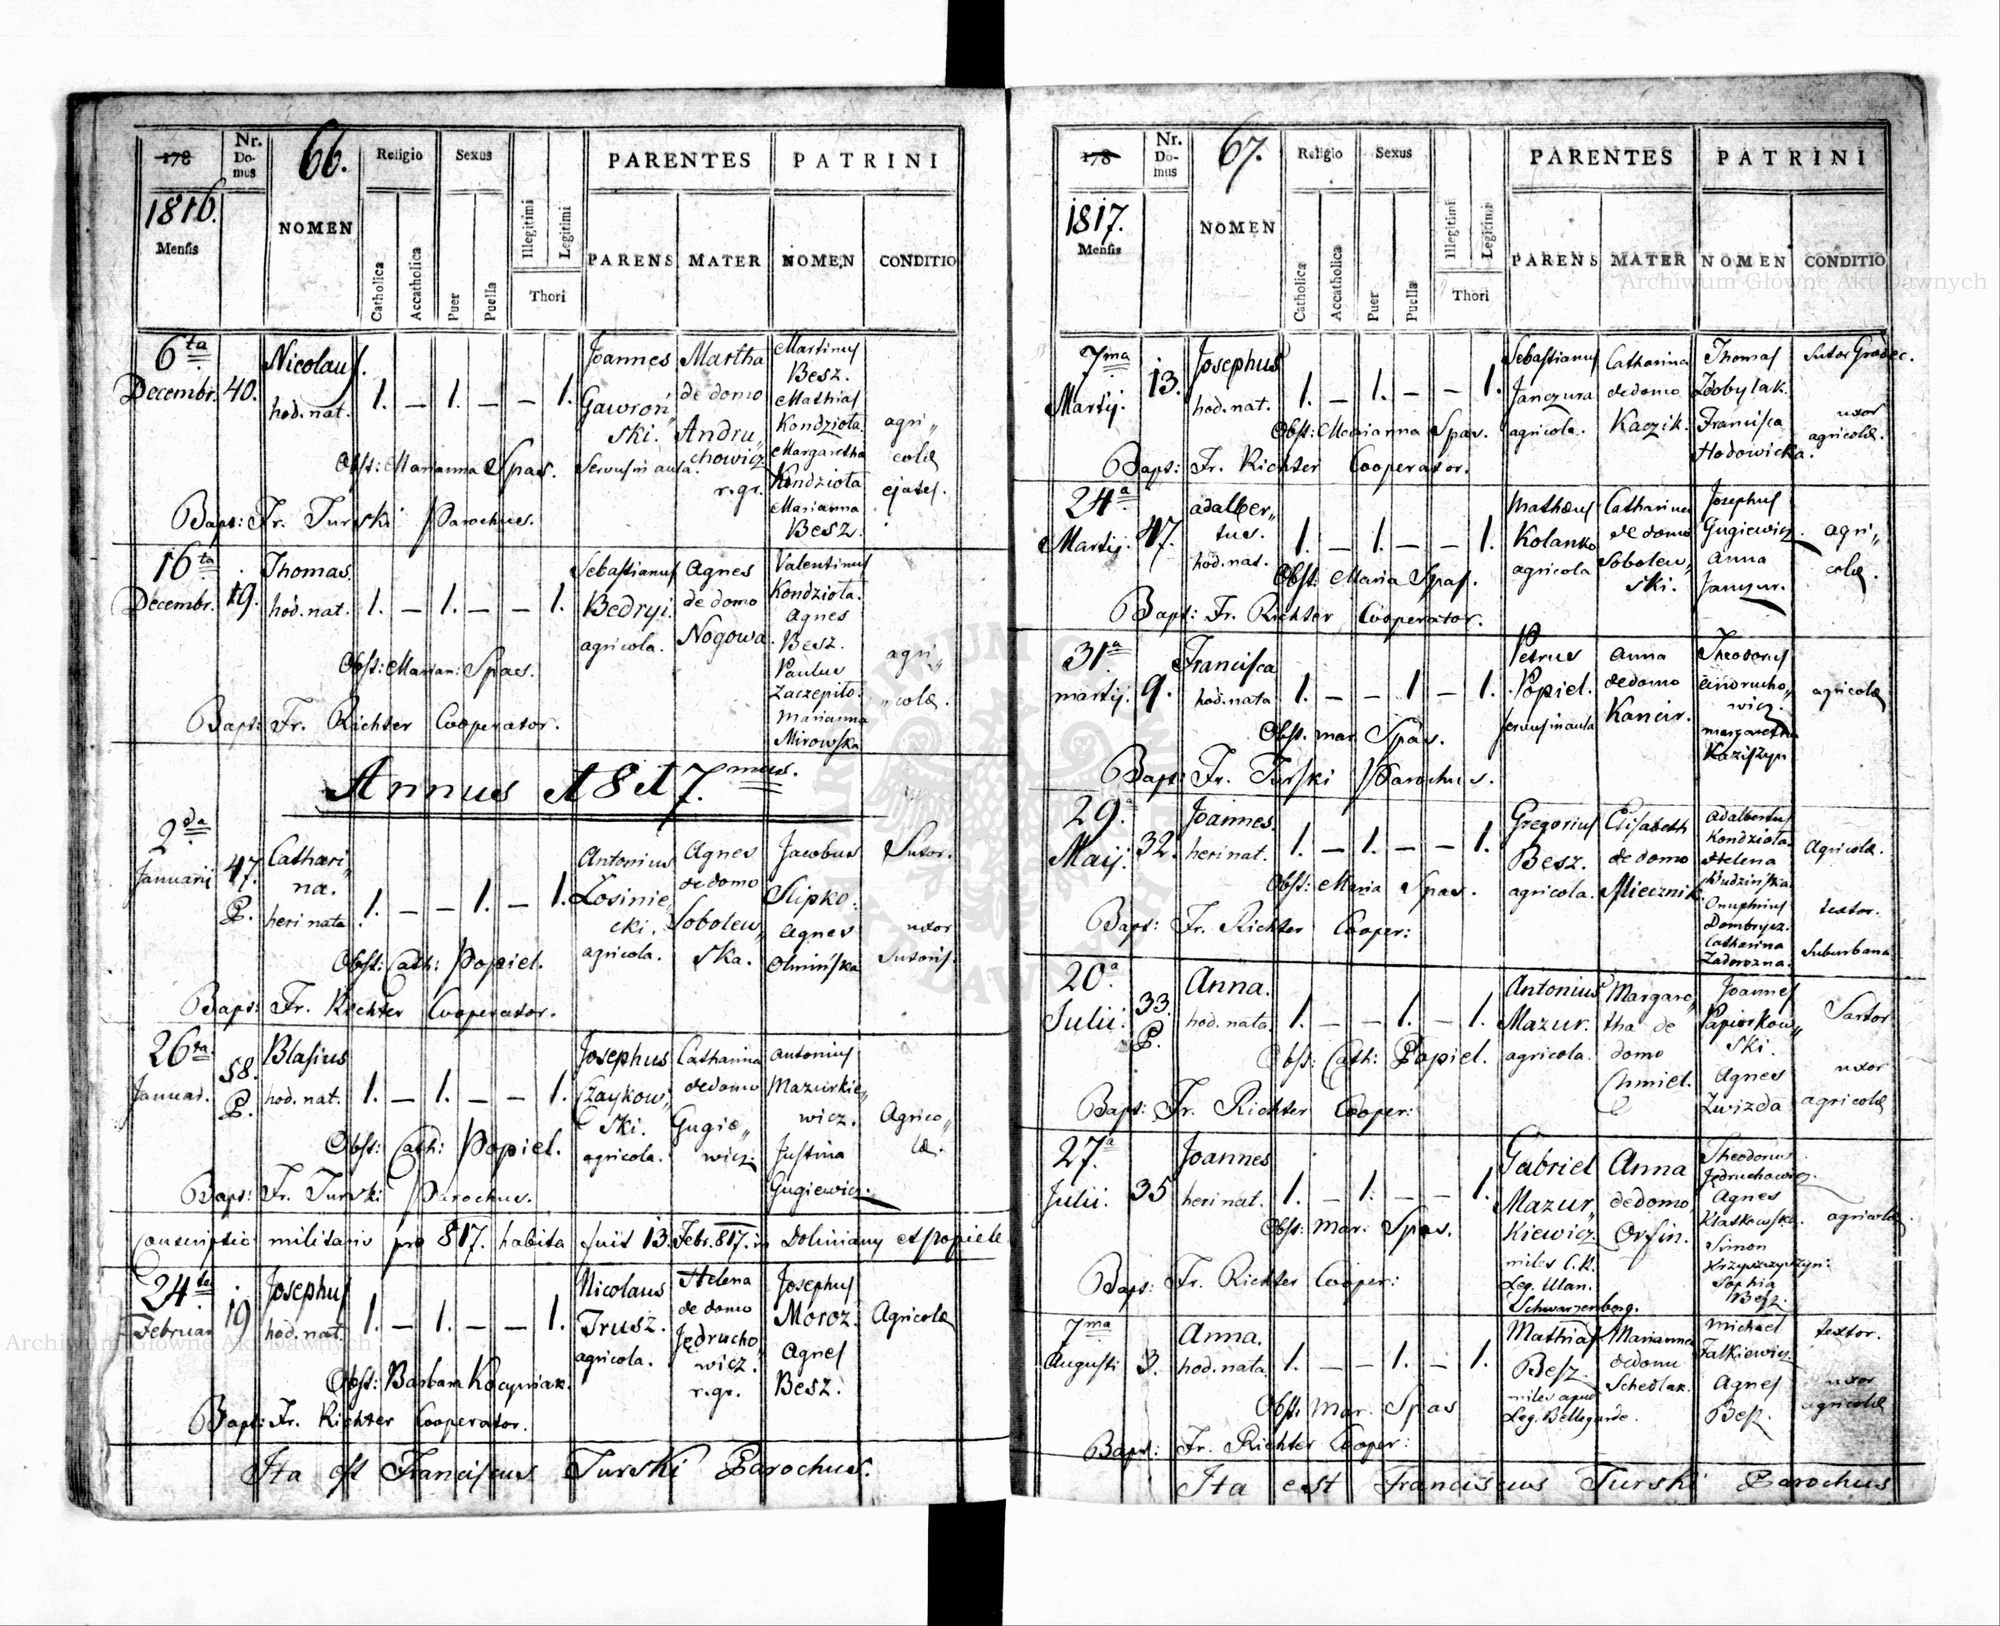 178
Nr. Domus
66.
Religio
Sexus
PARENTES
PATRINI
1816.
Mensis
NOMEN
Catholica
Accatholica
Puer
Puella
Illegitimi
Legitimi
Thori
PARENS
MATER
NOMEN
CONDITIO
6ta Decembr.
40.
Nicolaus.
hod. nat.
1. — 1. — — 1.
Joannes
Gawroń„
ski.
Servus in aula.
Martha
de domo
Andru„
chowicz
r. gr.
Martinus
Besz.
Mathias
Kondzioła
Margaretha
Kondzioła
Marianna
Besz.
agri„
colæ
ejates.
Obst: Marianna Spas.
Bapt: Fr. Turski Parochus.
16ta Decembr.
19.
Thomas.
hod. nat.
1. — 1. — — 1.
Sebastianus
Bedryi.
agricola.
Agnes
de domo
Nogowa.
Valentinus
Kondzioła.
Agnes
Besz.
Paulus
Zaczepiło.
Marianna
Mirowska
agri„
„colæ.
Obst: Marian: Spas.
Bapt: Fr. Richter Cooperator.
Annus 1817.mus.
2da Januarii
47.
P.
Cathari„
na.
heri nata.
1. — — 1. — 1.
Antonius
Łosinie„
cki.
agricola.
Agnes
de domo
Sobolew„
ska.
Jacobus
Slipko.
Agnes
Olmińska
Sutor.
uxor
Sutoris.
Obst: Cath: Popiel.
Bapt: Fr. Richter Cooperator.
26ta Januar.
58.
P.
Blasius
hod. nat.
1. — 1. — — 1.
Josephus
Czaykow„
ski.
agricola.
Catharina
de domo
Gugie„
wicz.
Antonius
Mazurkie„
wicz.
Justina
Gugiewicz.
Agrico„
læ.
Obst: Cath: Popiel.
Bapt: Fr. Turski Parochus.
Conscriptio militaris pro 817. habita fuit 13. Febr. 817. in Doliniany et Popiele
24ta Februar.
19
Josephus
hod. nat.
1. — 1. — — 1.
Nicolaus
Trusz.
agricola.
Helena
de domo
Jędrucho„
wicz.
r. gr.
Josephus
Moroz.
Agnes
Besz.
Agricolæ
Obst: Barbara
Bapt: Fr. Richter Cooperator.
Ita est Franciscus Turski Parochus.
178
Nr. Domus
67.
Religio
Sexus
PARENTES
PATRINI
1817.
Mensis
NOMEN
Catholica
Accatholica
Puer
Puella
Illegitimi
Legitimi
Thori
PARENS
MATER
NOMEN
CONDITIO
Archiwum Główne Akt Dawnych
7ma Martij.
13.
Josephus
hod. nat.
1. — 1. — — 1.
Sebastianus
Janczura
agricola.
Catharina
de domo
Kaczik.
Thomas
Zobylak.
Francisca
Hodowicka.
Sutor Grodec.
uxor
agricolæ.
Obst: Marianna Spas.
Bapt: Fr. Richter Cooperator.
24a Martij.
47.
Adalber„
tus.
hod. nat.
1. — 1. — — 1.
Mathæus
Kolanko
agricola
Catharina
de domo
Sobolew„
ski.
Josephus
Gugiewicz.
Anna
agri„
colæ.
Obst: Maria Spas.
Bapt: Fr. Richter Cooperator.
31a Martij.
9.
Francisca
hod. nata
1. — — 1 — 1.
Petrus
Popiel.
servus in aula
Anna
de domo
Kancir.
Theodorus
Andrucho„
wicz.
Margaretha
agricolæ
Obst. Mar Spas.
Bapt: Fr. Turski Parochus.
29a Maij.
32.
Joannes.
heri nat.
1. — 1. — — 1.
Gregorius
Besz.
agricola.
Elisabeth
de domo
Miecznik.
Adalbertus
Kondzioła.
Helena
Budzińska.
Onuphrius
Dombrycz.
Catharina
Zadorozna.
Agricolæ.
textor.
Suburbana
Obst: Maria Spas.
Bapt: Fr. Richter Cooper:
20a Julii.
33.
P.
Anna.
hod. nata.
1. — — 1. — 1.
Antonius
Mazur.
agricola.
Margare„
tha de
domo
Chmiel.
Joannes
Papiorkow„
ski.
Agnes
Zwizda
Sartor
uxor
agricolæ
Obst: Cath: Popiel.
Bapt: Fr. Richter Cooper:
27a Julii.
35
Joannes
heri nat.
1. — 1. — — 1.
Gabriel
Mazur„
kiewicz.
miles C. R.
Leg. Ulan.
Schwarzenberg.
Anna
de domo
Orfin.
Theodorus
Jędruchowicz.
Agnes
Simon
Sophia
Besz.
agricolæ.
Obst: Mar. Spas.
Bapt: Fr. Richter Cooper:
7ma Augusti
3.
Anna.
hod. nata.
1. — — 1. — 1.
Mathias
Besz
miles apud
Leg. Bellegarde.
Marianna
de domo
Schedlak.
Michael
Falkiewicz.
Agnes
Besz.
textor.
uxor
agricolæ
Obst: Mar. Spas
Bapt: Fr. Richter Cooper:
Ita est Franciscus Turski Parochus
Archiwum Główne Akt Dawnych